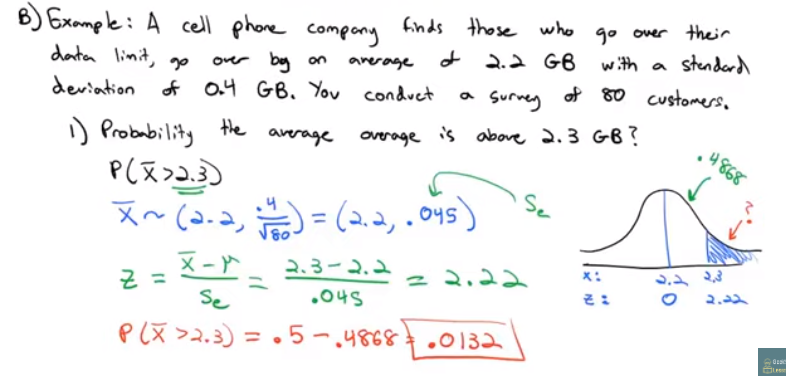 B) Example: A cell phone company finds those who go over their
data limit, go over by on average of 2.2 GB with a standard
deviation of 0.4 GB. You conduct a survey of 80 customers.
1) Probability the average overage is above 2.3 GB?
P(x̄>2.3)
x̄ ~ (2.2, .4/√80) = (2.2, .045) Se
z = (x̄-μ)/Se = (2.3-2.2)/.045 = 2.22
P(x̄>2.3) = .5-.4868 = .0132
.4868
?
x: 2.2 2.3
z: 0 2.22